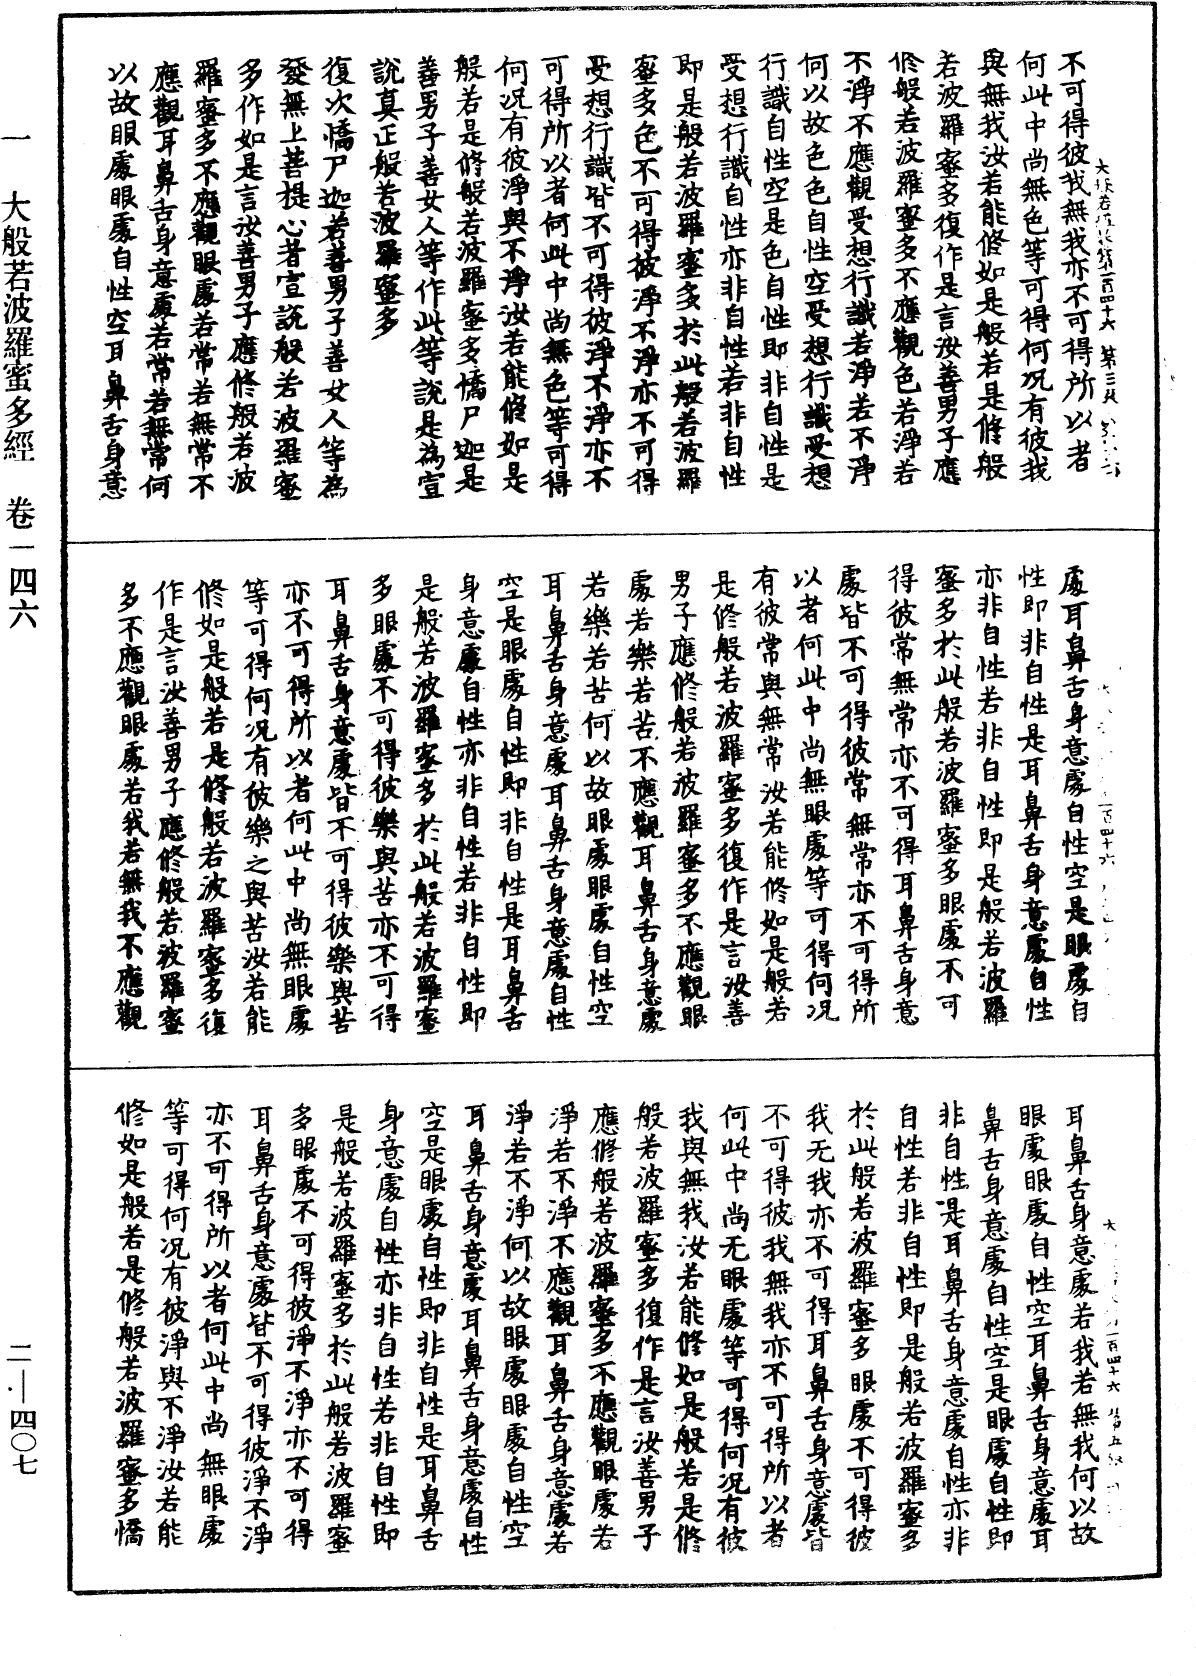 不可得彼我無我亦不可得所以者
何此中尚無色等可得何况有彼我
與無我汝若能修如是般若是修般
若波羅蜜多復作是言汝善男子應
修般若波羅蜜多不應觀色若淨若
不淨不應觀受想行識若淨若不淨
何以故色色自性空受想行識受想
行識自性空是色自性即非自性是
受想行識自性亦非自性若非自性
即是般若波羅蜜多於此般若波羅
蜜多色不可得彼淨不淨亦不可得
受想行識皆不可得彼淨不淨亦不
可得所以者何此中尚無色等可得
何况有彼淨與不淨汝若能修如是
般若是修般若波羅蜜多憍尸迦是
善男子善女人等作此等說是為宣
說真正般若波羅蜜多
復次憍尸迦若善男子善女人等為
發無上菩提心者宣說般若波羅蜜
多作如是言汝善男子應修般若波
羅蜜多不應觀眼處若常若無常不
應觀耳鼻舌身意處若常若無常何
以故眼處眼處自性空耳鼻舌身意
處耳鼻舌身意處自性空是眼處自
性即非自性是耳鼻舌身意處自性
亦非自性若非自性即是般若波羅
蜜多於此般若波羅蜜多眼處不可
得彼常無常亦不可得耳鼻舌身意
處皆不可得彼常無常亦不可得所
以者何此中尚無眼處等可得何况
有彼常與無常汝若能修如是般若
是修般若波羅蜜多復作是言汝善
男子應修般若波羅蜜多不應觀眼
處若樂若苦不應觀耳鼻舌身意處
若樂若苦何以故眼處眼處自性空
耳鼻舌身意處耳鼻舌身意處自性
空是眼處自性即非自性是耳鼻舌
身意處自性亦非自性若非自性即
是般若波羅蜜多於此般若波羅蜜
多眼處不可得彼樂與苦亦不可得
耳鼻舌身意處皆不可得彼樂與苦
亦不可得所以者何此中尚無眼處
等可得何况有彼樂之與苦汝若能
修如是般若是修般若波羅蜜多復
作是言汝善男子應修般若波羅蜜
多不應觀眼處若我若無我不應觀
耳鼻舌身意處若我若無我何以故
眼處眼處自性空耳鼻舌身意處耳
鼻舌身意處自性空是眼處自性即
非自性是耳鼻舌身意處自性亦非
自性若非自性即是般若波羅蜜多
於此般若波羅蜜多眼處不可得彼
我无我亦不可得耳鼻舌身意處皆
不可得彼我無我亦不可得所以者
何此中尚无眼處等可得何况有彼
我與無我汝若能修如是般若是修
般若波羅蜜多復作是言汝善男子
應修般若波羅蜜多不應觀眼處若
淨若不淨不應觀耳鼻舌身意處若
淨若不淨何以故眼處眼處自性空
耳鼻舌身意處耳鼻舌身意處自性
空是眼處自性即非自性是耳鼻舌
身意處自性亦非自性若非自性即
是般若波羅蜜多於此般若波羅蜜
多眼處不可得彼淨不淨亦不可得
耳鼻舌身意處皆不可得彼淨不淨
亦不可得所以者何此中尚無眼處
等可得何况有彼淨與不淨汝若能
修如是般若是修般若波羅蜜多憍
一 大般若波羅蜜多經 卷一四六
二—四〇七